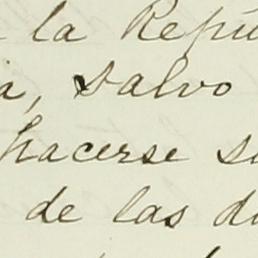 la Repú
a, salvo
hacerse s
de las d